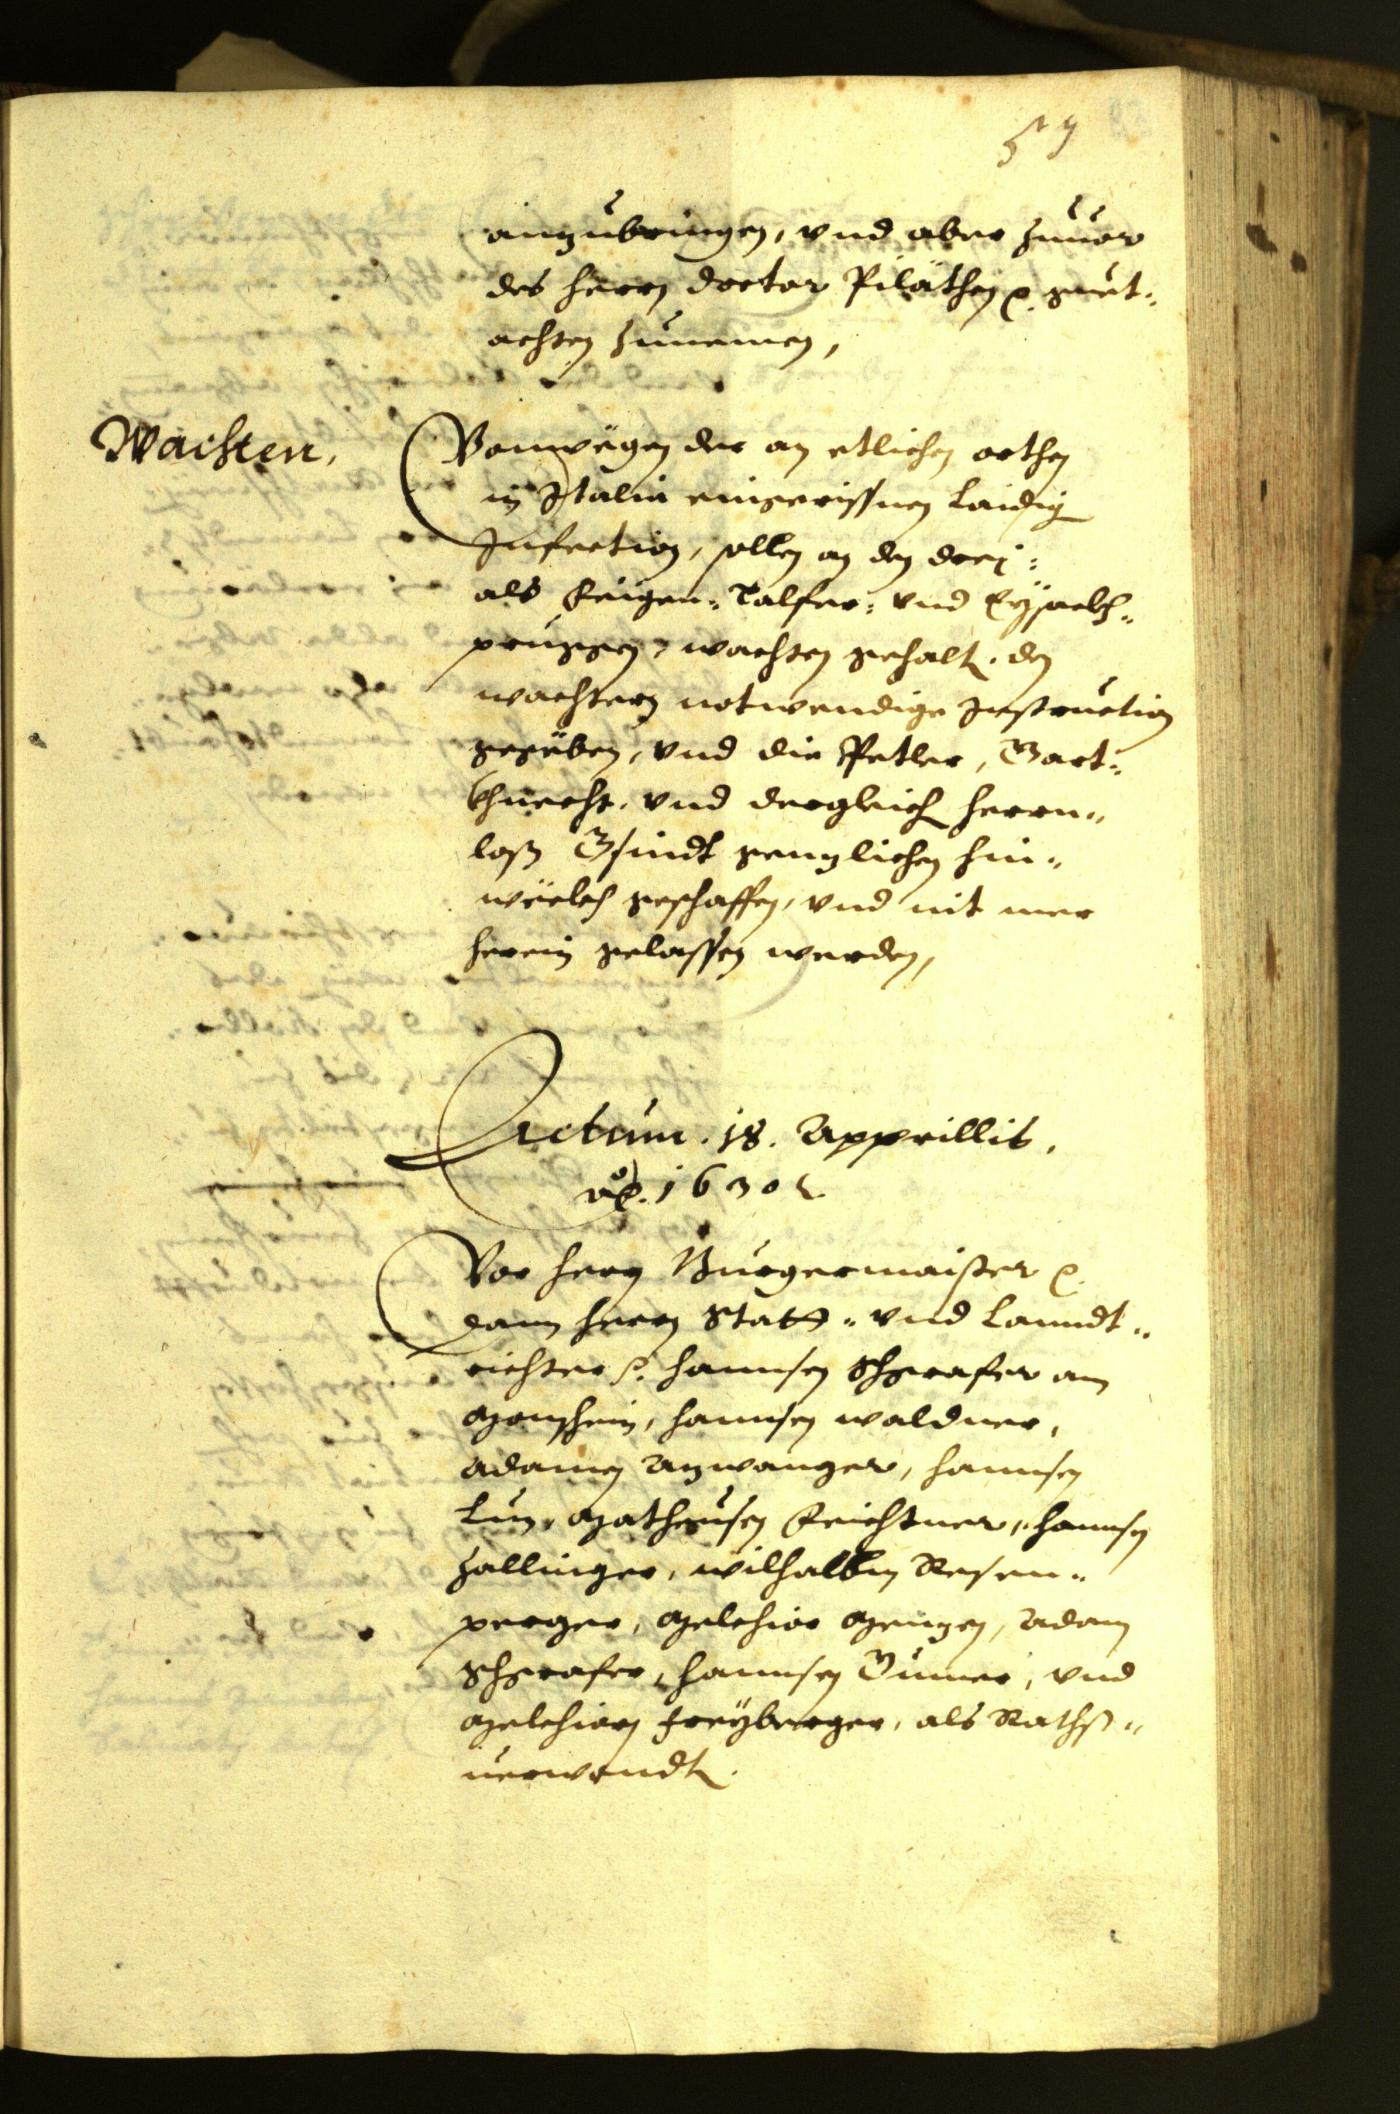 59
ainzubringen, vnd aber zuuor
des herrn doctor Piläthen p. guet-
achten zunemen,
Wachten,
Vonwëgen der an etlichen orthen
in Italia eingerissnen laidig
Infection, sollen an den drej:
als Feigen: Talfer: vnd Eÿsackh-
pruggen, wachten gehalt, den
wachtern notwendige Instruction
gegëben, vnd die Petler, Gart-
Khnecht, vnd dergleich herrn-
loß Gsindt genzlichen hin-
wëckh geschaffen, vnd nit mer
herein gelassen werden,
Actum. 18. Apprillis,
ao. 1630
Vor herrn Burgermaister p.
dann herrn Statt- vnd Lanndt-
richter p. hannsen Schgrafer am
Monschein, hannsen waldner,
Adamen Anwanger, hannsen
Lun, Matheusen Feichtner, hannsen
Zallinger, wilhalbm Rosen-
perger, Melchior Menzen, Adam
Schgrafer, hannsen Gumer, vnd
Melchiorn Freÿberger, als Raths-
uerwandt.